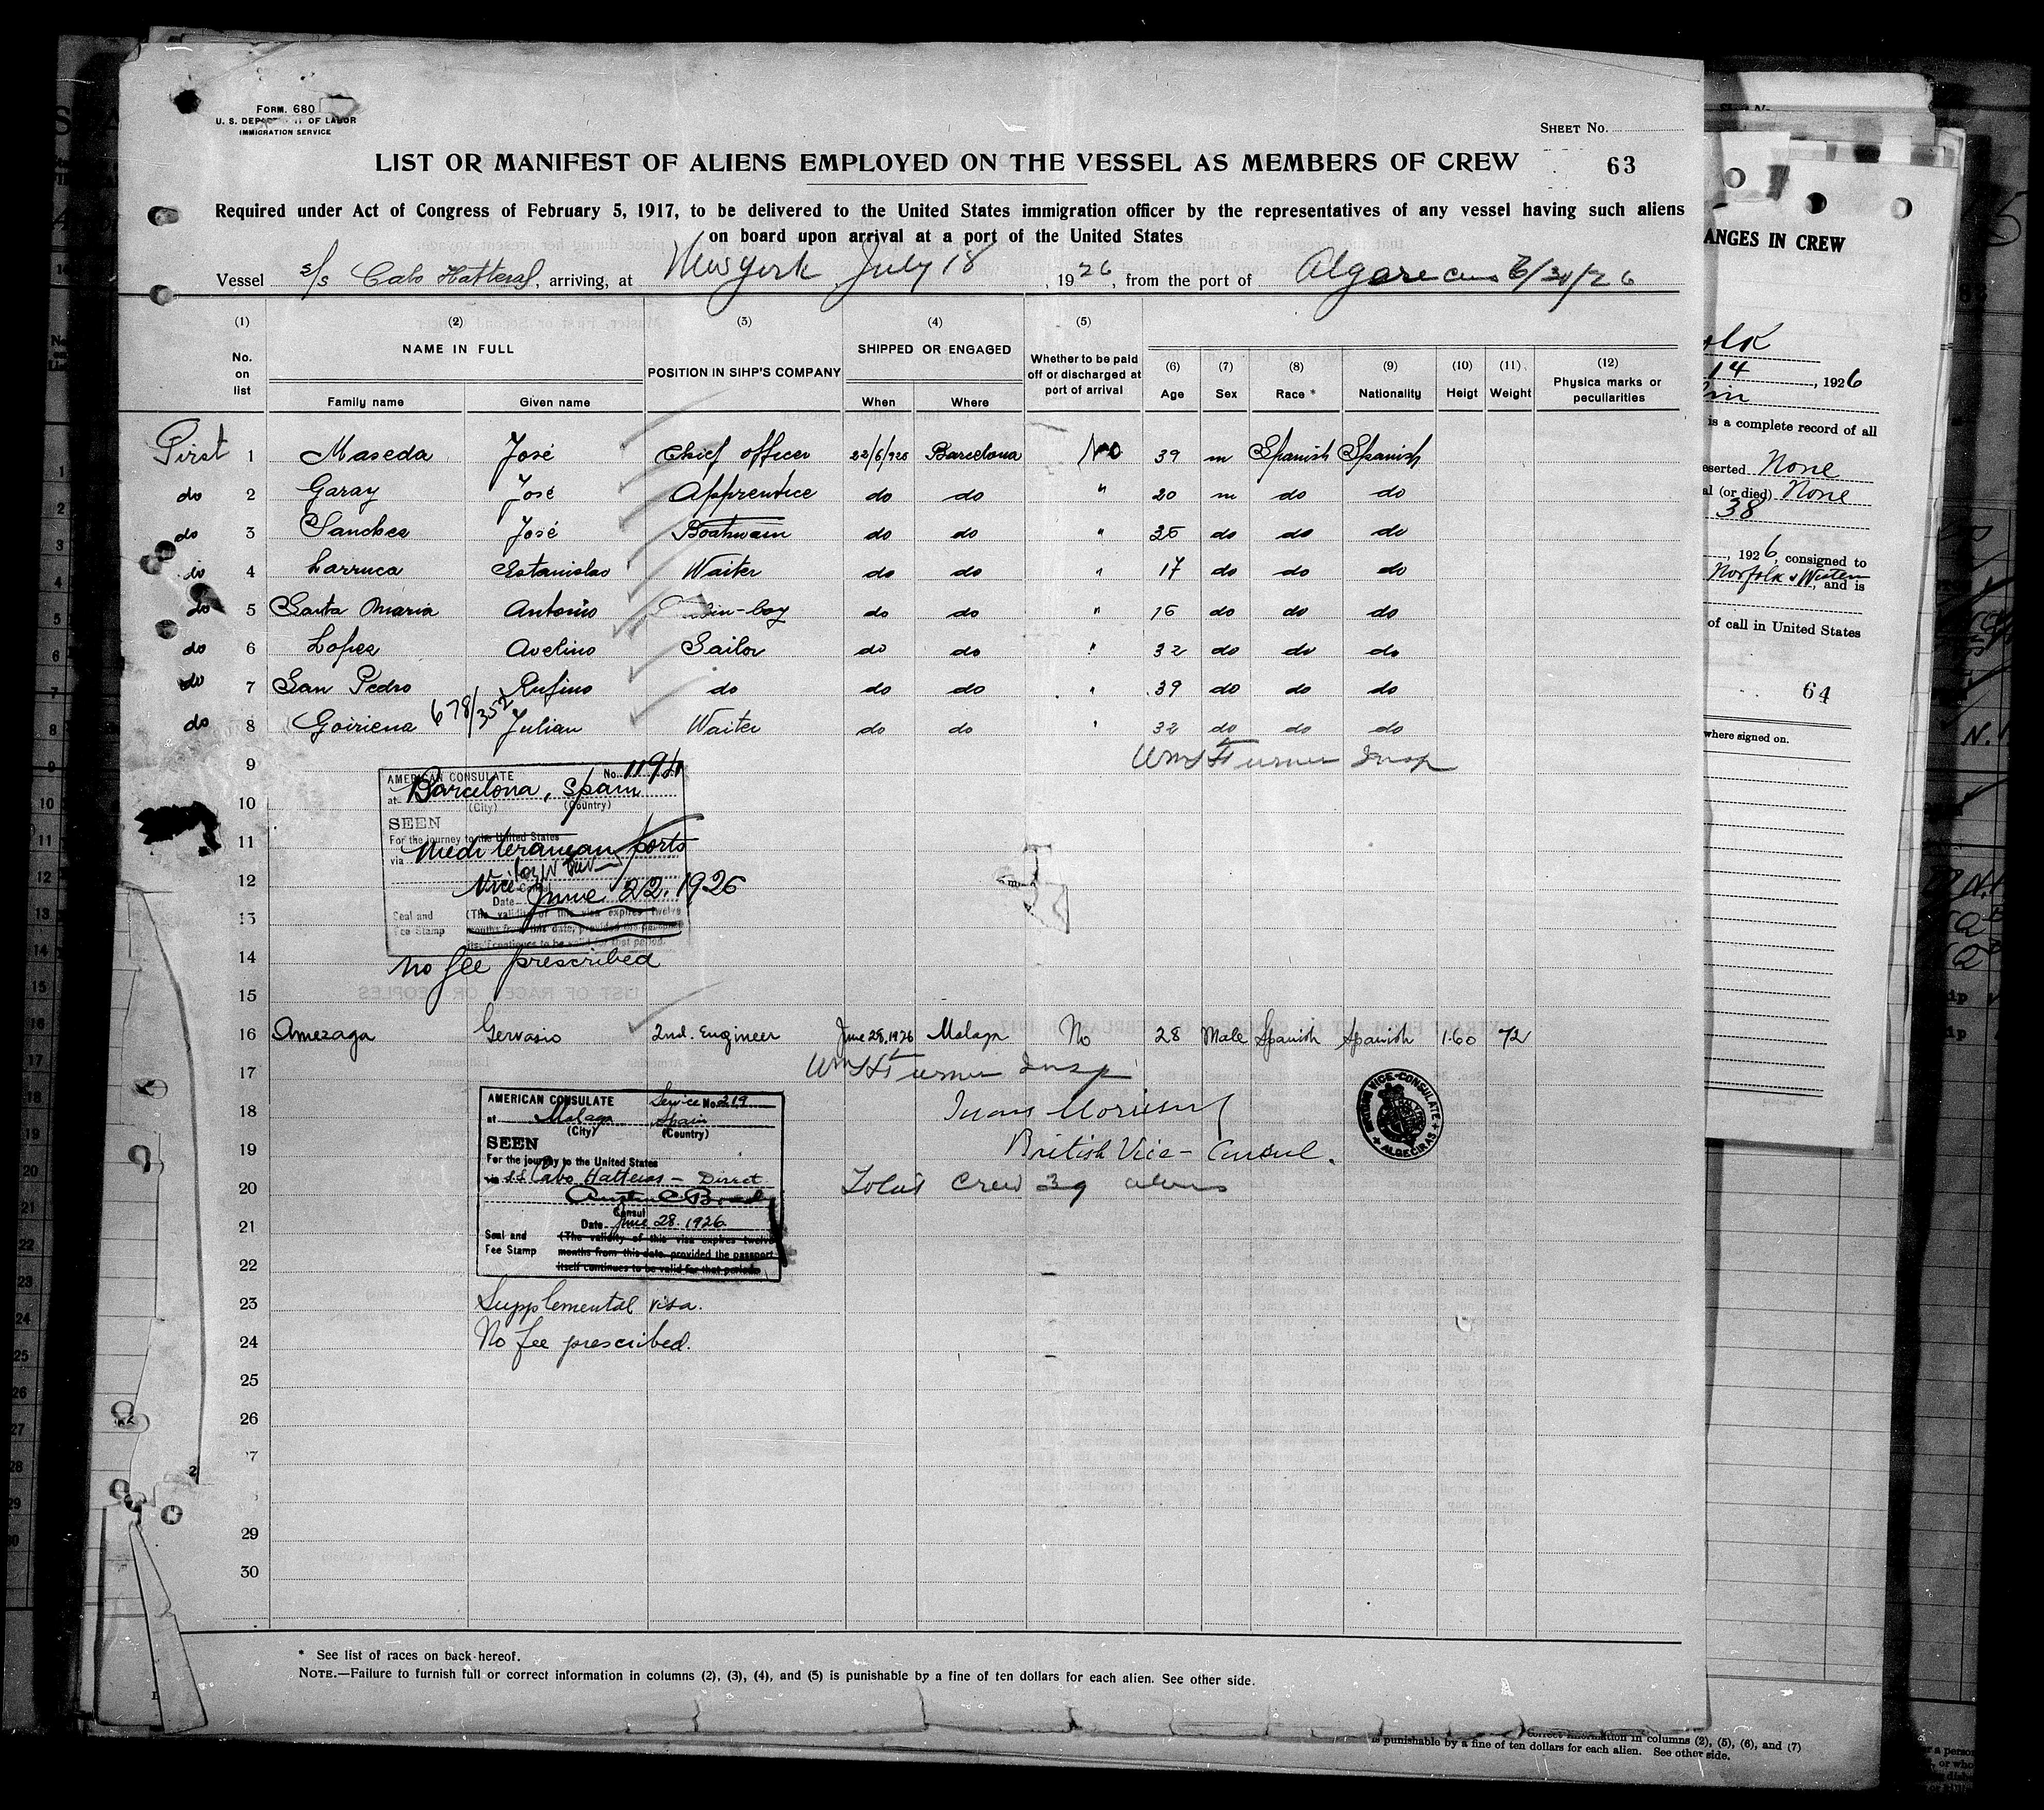 FORM. 680
U. S. DEPARTMENT OF LABOR
IMMIGRATION SERVICE
SHEET No.
LIST OR MANIFEST OF ALIENS EMPLOYED ON THE VESSEL AS MEMBERS OF CREW
63
Required under Act of Congress of February 5, 1917, to be delivered to the United States immigration officer by the representatives of any vessel having such aliens
on board upon arrival at a port of the United States
Vessel s/s Cabo Hatteras, arriving, at New York July 18, 1926, from the port of Algeciras 6/30/26
(1) (2) (3) (4) (5) (6) (7) (8) (9) (10) (11) (12)
No. on list NAME IN FULL Family name Given name POSITION IN SIHP'S COMPANY SHIPPED OR ENGAGED When Where Whether to be paid off or discharged at port of arrival Age Sex Race * Nationality Heigt Weight Physica marks or peculiarities
First 1 Maseda José Chief officer 22/6/926 Barcelona No 39 m Spanish Spanish
do 2 Garay José Apprentice do do " 20 m do do
do 3 Sanchez José Boatswain do do " 35 do do do
do 4 Larruca Estanislao Waiter do do " 17 do do do
do 5 Santa Maria Antonio Cabin-boy do do " 16 do do do
do 6 Lopez Avelino Sailor do do " 32 do do do
do 7 San Pedro Rufino do do do " 39 do do do
do 8 Goiriena 678/352 Julian Waiter do do " 32 do do do
Wm H Turner Insp
9
AMERICAN CONSULATE No.
at Barcelona, Spain
(City) (Country)
10
SEEN
For the journey to the United States
11
via Mediteranean ports
12
Vice Consul
Date June 22. 1926
13
Seal and Fee Stamp
(The validity of this visa expires twelve
months from this date, provided the passport
itself continues to be valid for that period.
14
No fee prescribed
15
16 Amezaga Gervasio 2nd. Engineer June 28, 1926 Malaga No 28 Male Spanish Spanish 1.60 72
17 Wm H Turner Insp
AMERICAN CONSULATE Service No. 219
at Malaga Spain
(City) (Country)
18
SEEN
19 British Vice-Consul.
BRITISH VICE-CONSULATE ALGECIRAS
For the journey to the United States
via S.S. Cabo Hatteras - Direct
20 Total Crew 39 aliens
Consul
21
Date June 28. 1926
Seal and Fee Stamp
(The validity of this visa expires twelve
months from this date, provided the passport
itself continues to be valid for that period.
22
23 Supplemental visa.
24 No fee prescribed.
25
26
7
29
30
* See list of races on back hereof.
NOTE.—Failure to furnish full or correct information in columns (2), (3), (4), and (5) is punishable by a fine of ten dollars for each alien. See other side.
ANGES IN CREW
14, 1926
is a complete record of all
eserted None
al (or died) None
38
, 1926, consigned to
Norfolk & Western, and is
of call in United States
64
where signed on.
correct information in columns (2), (5), (6), and (7)
is punishable by a fine of ten dollars for each alien. See other side.